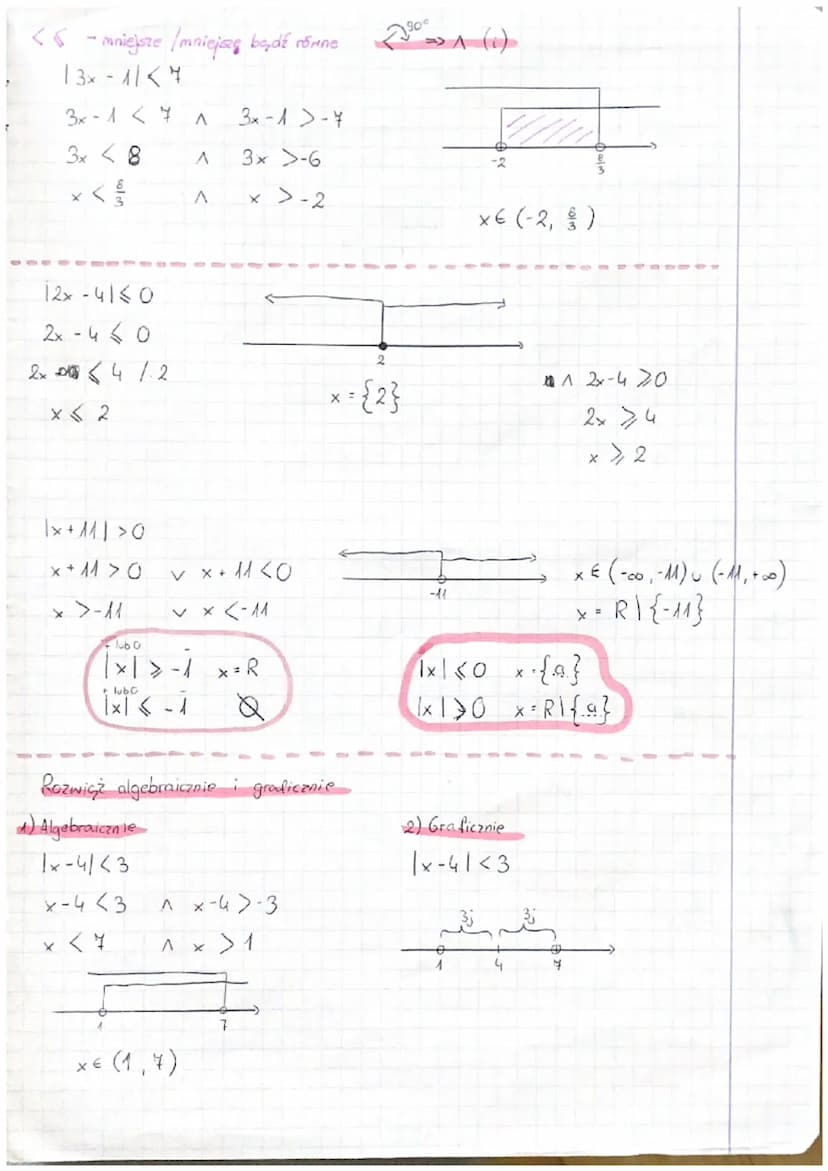 < ≤ - mniejsze /mniejszę bądź równe
90° => ∧ (i)
|3x - 1| < 7
3x - 1 < 7 ∧ 3x - 1 > -7
3x < 8 ∧ 3x > -6
x < 8/3 ∧ x > -2
-2 8/3
x ∈ (-2, 8/3)
|2x - 4| ≤ 0
2x - 4 ≤ 0
2x ≤ 4 /:2
x ≤ 2
2
x = {2}
∧ 2x-4 ≥ 0
2x ≥ 4
x ≥ 2
|x + 11| > 0
x + 11 > 0 ∨ x + 11 < 0
x > -11 ∨ x < -11
-11
x ∈ (-∞, -11) ∪ (-11, +∞)
x = R \ {-11}
+ lub 0
|x| ≥ -1 x = R
+ lub 0
|x| ≤ -1 Ø
|x| ≤ 0 x = {.a.}
|x| > 0 x = R \ {.a.}
Rozwiąż algebraicznie i graficznie
1) Algebraicznie
|x-4| < 3
x-4 < 3 ∧ x-4 > -3
x < 7 ∧ x > 1
1 7
x ∈ (1, 7)
2) Graficznie
|x-4| < 3
3j 3j
1 4 7